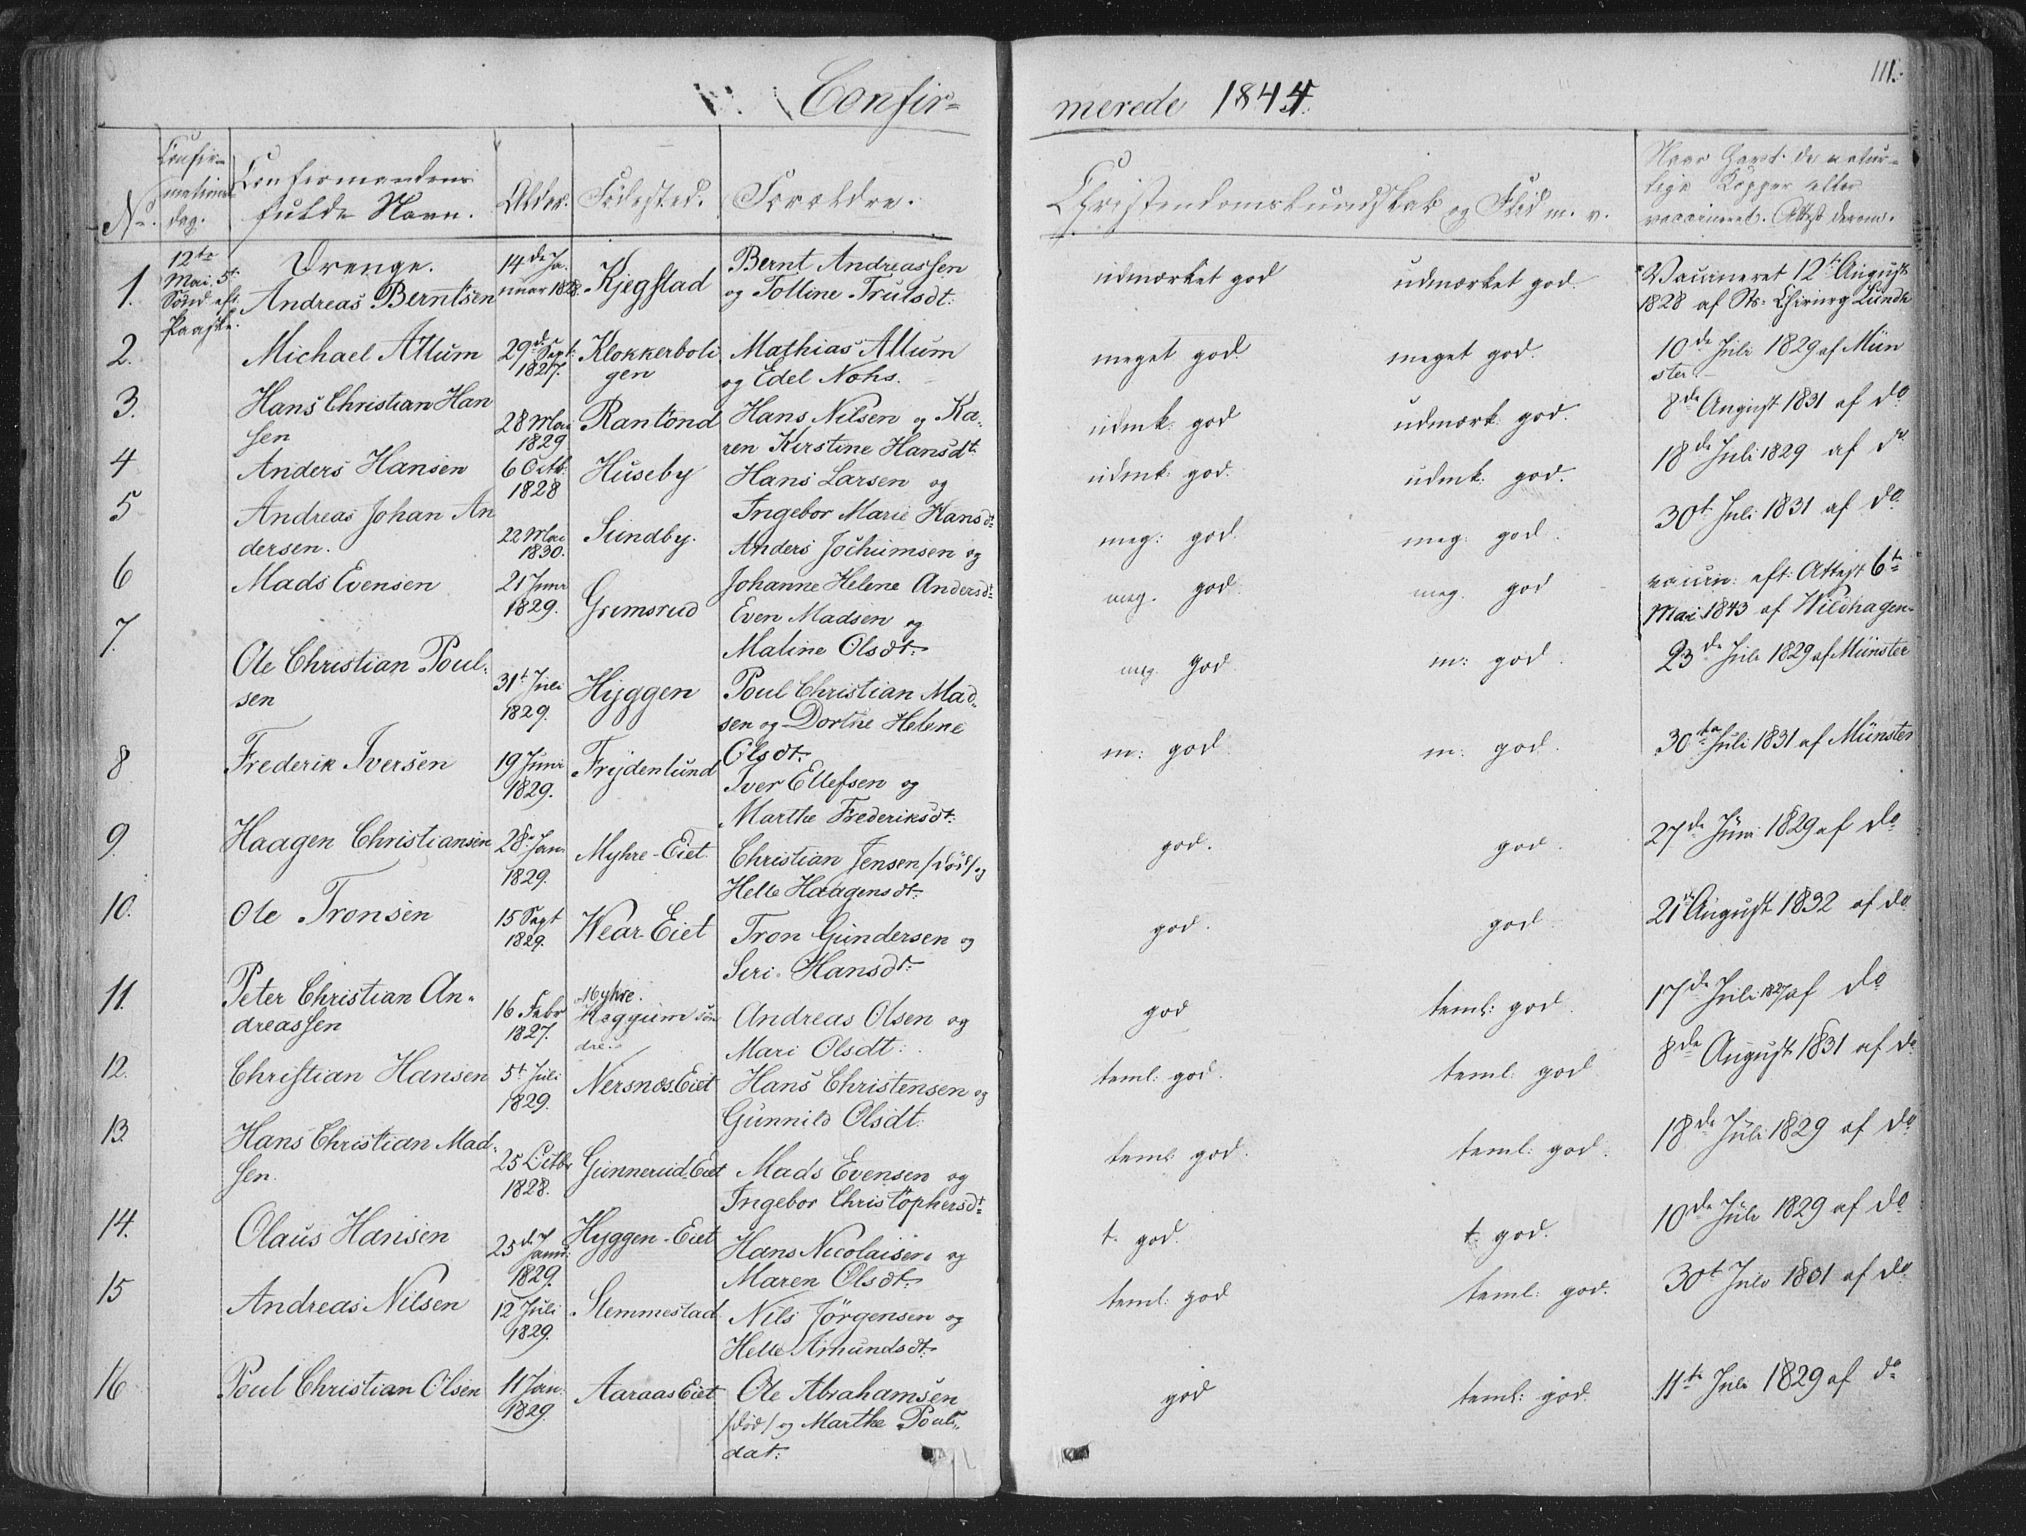 Confir=
merede 1844.
111.
No.
Confir-
mations
dag.
Confirmandens
fulde Navn.
Alder.
Födested.
Forældre.
Christendomskundskab og Flid m. v.
Naar havt de natur-
lige Kopper eller
vaccineret. Attest derom.
12te
Mai. 5te
Sönd. eft.
Paaske.
Drenge.
1. Andreas Berntsen
14de Ja-
nuar 1828.
Kjegstad
Bernt Andreassen
og Tolline Trulsdt:
udmærket god
udmærket god.
Vaccineret 12t August
1828 af Chirurg Lunde
2. Michael Allum
29de Sept:
1827.
Klokkerboli
gen
Mathias Allum
og Edel Nohs.
meget god
meget god.
10de Juli 1829 af Mün
ster
3. Hans Christian Han
sen
28 Mai
1829
Rantond
Hans Nilsen og Ka-
ren Kirstine Hansdt:
udmk: god
udmærk. god.
8de August 1831 af do
4 Anders Hansen
6 Octb:
1828
Huseby
Hans Larsen og
Ingebor Marie Hansdt:
udmk: god.
udmk: god.
18de Juli 1829 af do
5 Andreas Johan An
dersen.
22 Mai
1830.
Sundby.
Anders Jochumsen og
Johanne Helene Andersdt:
meg: god
meg: god.
30t Juli 1831 af do
6 Mads Evensen
21 Juni
1829.
Gremsrud
Even Madsen og
Maline Olsdt:
meg. god
meg. god
vaccin: eft: Attest 6te
Mai 1843 af Wildhagen
7. Ole Christian Poul-
sen
31t Juli
1829.
Hyggen
Poul Christian Mad-
sen og Dorthe Helene
Olsdt:
meg. god
m: god.
23de Juli 1829 af Münster
8 Frederik Iversen
19 Juni
1829.
Frydenlund
Iver Ellefsen og
Marthe Frederiksdt:
m: god
m: god.
30te Juli 1831 af Münster
9. Haagen Christiansen
28. Jan.
1829.
Myhre-Eiet
Christian Jensen /död/ og
Helle Haagensdt:
god.
god.
27de Juni 1829 af do
10. Ole Tronsen
15 Sept
1829.
Wear-Eiet
Tron Gundersen og
Siri Hansdt:
god.
god
21t August 1832 af do
11. Peter Christian An-
dreassen
16 Febr
1827.
Myhre.
Andreas Olsen og
Mari Olsdt:
god
teml: god.
17de Juli 1827 af do
12. Christian Hansen
5t Juli
1829.
Nersnæs.Eiet
Hans Christensen og
Gunnild Olsdt:
teml: god.
teml: god
8de August 1831 af do
13. Hans Christian Mad-
sen.
25 Octbr
1828.
Gunnerud-Eiet
Mads Evensen og
Ingebor Christophersdt:
teml: god.
teml: god.
18de Juli 1829 af do
14. Olaus Hansen
25de Janu:
1829.
Hyggen-Eiet
Hans Nicolaisen og
Maren Olsdt:
t. god.
t. god.
10de Juli 1829 af do
15 Andreas Nilsen
12 Juli
1829.
Slemmestad
Nils Jörgensen og
Helle Amundsdt:
teml: god
teml: god.
30t Juli 1831 af do
16 Poul Christian Olsen
11 Jan.
1829.
Aaraas Eiet
Ole Abrahamsen
/död/ og Marthe Pouls-
dat:
god
teml: god
11te Juli 1829 af do